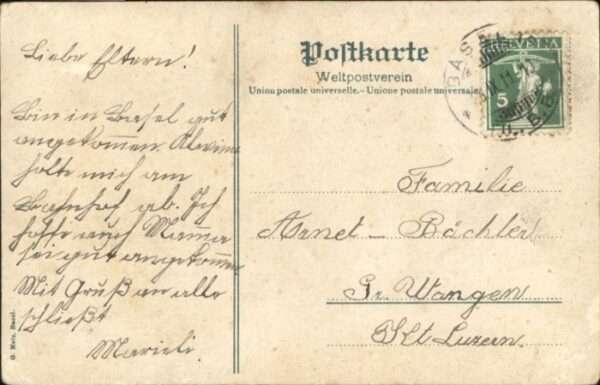 Liebe Eltern!
Bin in Basel gut
angekommen.
holte mich am
Bahnhof ab. Ich
hoffe auch Mama
sei gut angekommen
Mit Gruß an alle
schließt
Marieli.
G. Metz, Basel.
Postkarte
Weltpostverein
Union postale universelle. – Unione postale universale.
BASEL
HELVETIA
5
Familie
Arnet – Bächler
Gr. Wangen
Kt Luzern.